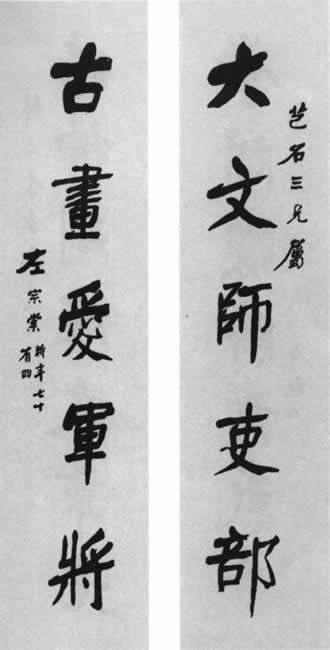 芑石三兄属
大文師吏部
古畫愛軍將
左宗棠
時年七十
有四